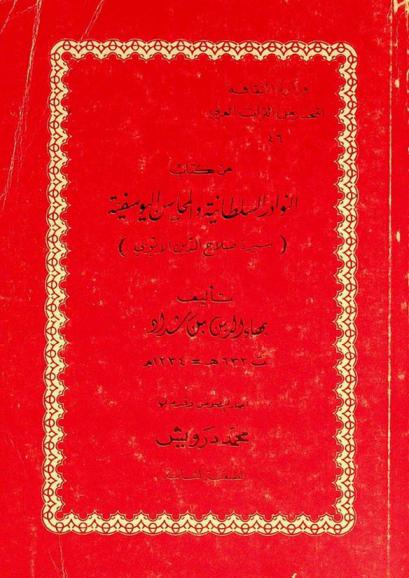 وزارة الثقافة
المختار من التراث العربي
٤٦
من كتاب
النوادر السلطانية والمحاسن اليوسفية
( سيرة صلاح الدين الأيوبي )
تأليف
بهاء الدين بن شداد
ت ٦٣٢ هـ = ١٢٣٤ م
اختار النصوص وقدم لها
محمد درويش